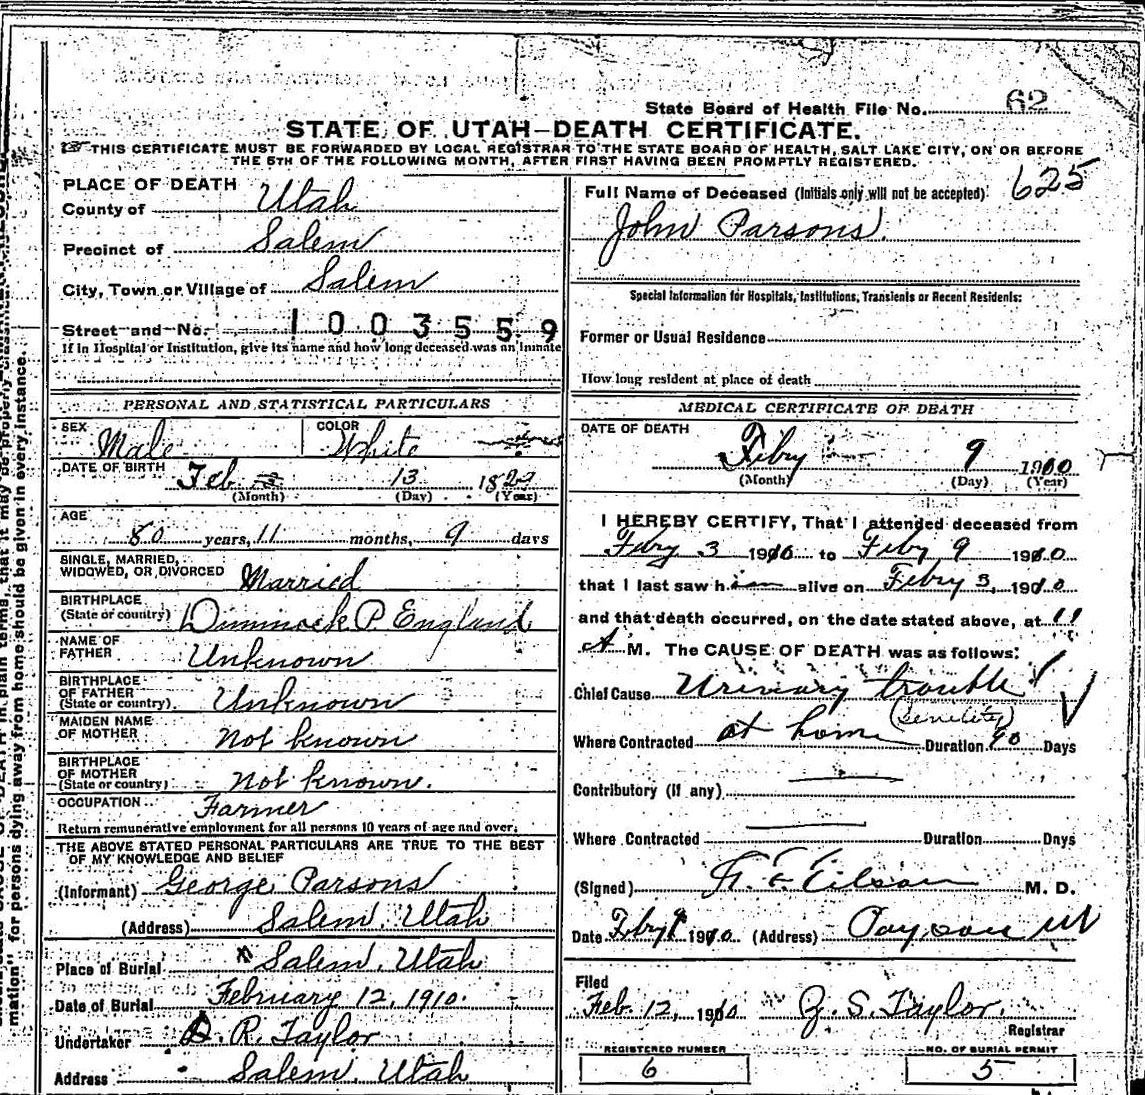 State Board of Health File No. 62
STATE OF UTAH—DEATH CERTIFICATE.
THIS CERTIFICATE MUST BE FORWARDED BY LOCAL REGISTRAR TO THE STATE BOARD OF HEALTH, SALT LAKE CITY, ON OR BEFORE
THE 5TH OF THE FOLLOWING MONTH, AFTER FIRST HAVING BEEN PROMPTLY REGISTERED.
625
PLACE OF DEATH
County of Utah
Precinct of Salem
City, Town or Village of Salem
Street and No. 1003559
If in Hospital or Institution, give its name and how long deceased was an inmate
PERSONAL AND STATISTICAL PARTICULARS
SEX Male COLOR White
DATE OF BIRTH Feb 13 1822
(Month) (Day) (Year)
AGE
80 years, 11 months, 9 days
SINGLE, MARRIED,
WIDOWED, OR DIVORCED Married
BIRTHPLACE
(State or country) England
NAME OF
FATHER Unknown
BIRTHPLACE
OF FATHER
(State or country) Unknown
MAIDEN NAME
OF MOTHER Not known
BIRTHPLACE
OF MOTHER
(State or country) Not known.
OCCUPATION Farmer
Return remunerative employment for all persons 10 years of age and over.
THE ABOVE STATED PERSONAL PARTICULARS ARE TRUE TO THE BEST
OF MY KNOWLEDGE AND BELIEF
(Informant) George Parsons
(Address) Salem, Utah
Place of Burial Salem, Utah
Date of Burial February 12, 1910.
Undertaker D. R. Taylor
Address Salem, Utah
Full Name of Deceased (Initials only will not be accepted)
John Parsons.
Special Information for Hospitals, Institutions, Transients or Recent Residents:
Former or Usual Residence
How long resident at place of death
MEDICAL CERTIFICATE OF DEATH
DATE OF DEATH
Feby 9 1910
(Month) (Day) (Year)
I HEREBY CERTIFY, That I attended deceased from
Feby 3 1910 to Feby 9 1910
that I last saw him alive on Febry 3, 1910
and that death occurred, on the date stated above, at 11
A M. The CAUSE OF DEATH was as follows:
Chief Cause Urinary trouble
(senility)
Where Contracted at home Duration 90 Days
Contributory (if any)
Where Contracted Duration Days
(Signed) M. D.
Date Feby 1910 (Address) Payson Ut
Filed
Feb. 12, 1910 S. Taylor.
Registrar
REGISTERED NUMBER
6
NO. OF BURIAL PERMIT
5
mation" for persons dying away from home should be given in every instance.